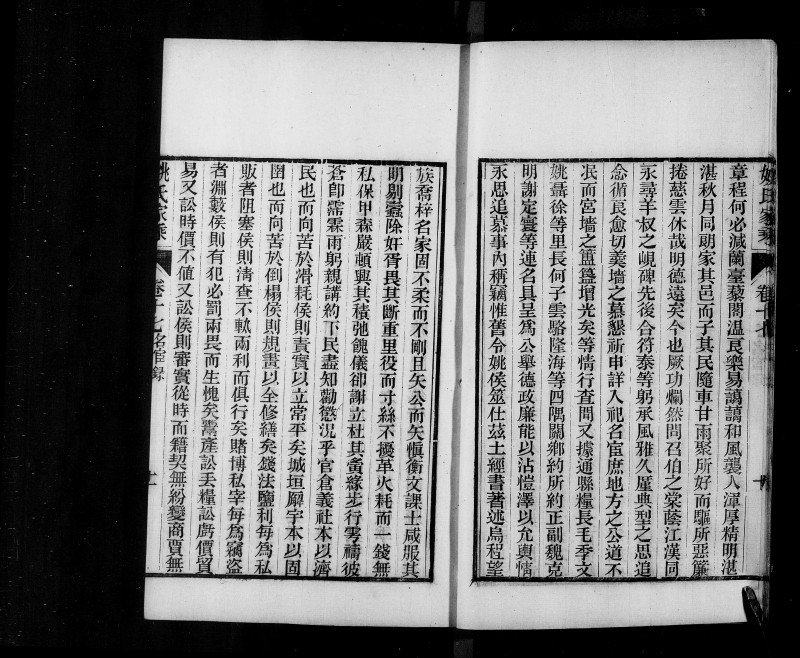 姚氏家乘 卷十七
章程何必減蘭臺藜閣溫良樂易藹藹和風襲人渾厚精明湛
湛秋月同朗家其邑而子其民隨車甘雨聚所好而驅所惡簾
捲慈雲休哉明德遠矣今也厥功爛然問召伯之棠蔭江漢同
永尋羊叔之峴碑光後合符泰等躬承風雅久廑典型之思追
念循良愈切羹墻之慕懇祈申詳入祀名宦庶地方之公道不
泯而宮墻之簠簋增光矣等情行查間又據通縣糧長毛季文
姚聶徐等里長何子雲駱隆海等四隅關鄉約所約正副魏克
明謝定寰等連名具呈為公舉德政廉能以沾愷澤以允輿情
永思追慕事內稱竊惟舊令姚侯筮仕茲土經書著述烏程望
族喬梓名家固不柔而不剛且矢公而矢愼衡文課士咸服其
明剔蠹除奸胥畏其斷重里役而寸絲不擾革火耗而一錢無
私保甲森嚴頓興其積弛餽儀卻謝立杜其夤緣步行雩禱彼
蒼卽霈霖雨躬親講約下民盡知勸懲況乎官倉義社本以濟
民也而向苦於滑耗侯則責實以立常平矣城垣廨宇本以固
圉也而向苦於倒榻侯則規畫以全修繕矣錢法鹽利每為私
販者阻塞侯則淸查不軌兩利而俱行矣賭博私宰每為竊盜
者淵藪侯則有犯必罰兩畏而生愧矣鬻產訟丟糧訟虧價貿
易又訟時價不値又訟侯則審實從時而籍契無紛變商賈無
姚氏家乘 卷十七 名宦錄